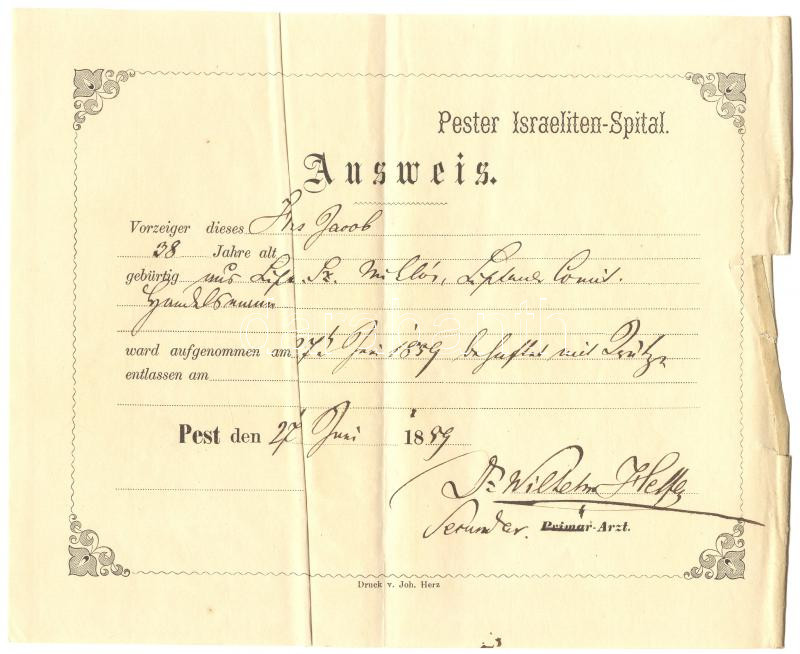 Pester Israeliten-Spital.
Ausweis.
Vorzeiger dieses Jacob
38 Jahre alt
gebürtig aus Lipt. Sz. Miklós, Liptauer Comit.
Handelsmann
ward aufgenommen am 27t Juni 1859 behaftet mit Krätze
entlassen am
Pest den 27 Juni 1859
Dr Wilhelm
Secundar. Primar-Arzt.
Druck v. Joh. Herz